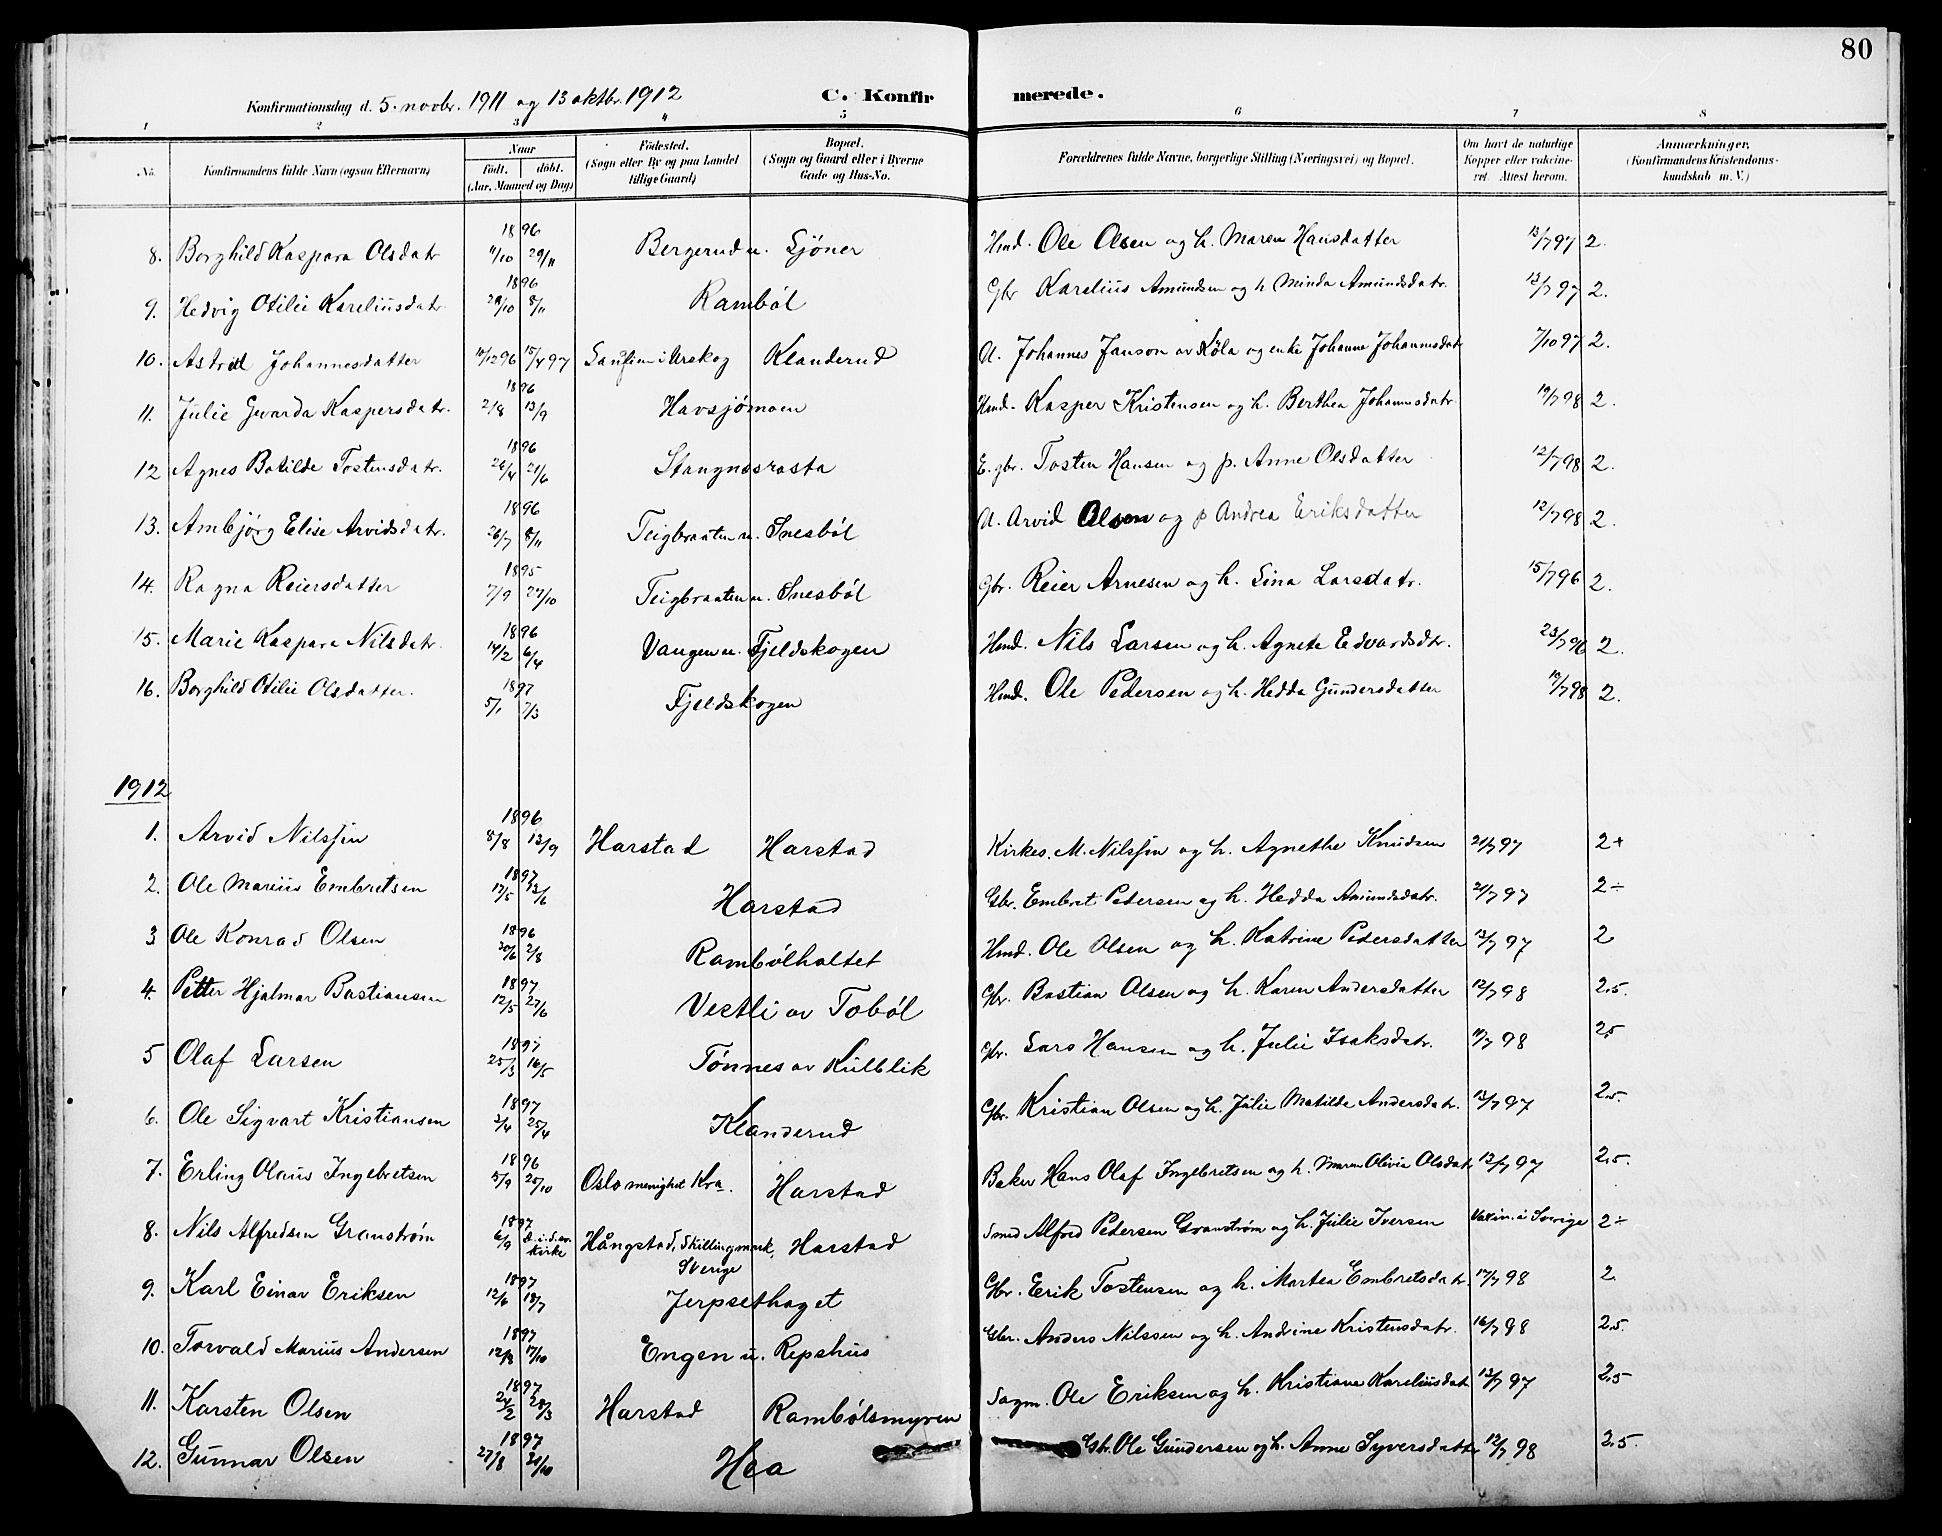 80
Konfirmationsdag d. 5. novbr. 1911 og 13 oktbr. 1912 C. Konfirmerede.
1 2 3 4 5 6 7 8
No. Konfirmandens fulde Navn (ogsaa Efternavn) Naar født. døbt. (Aar, Maaned og Dag) Fødested. (Sogn eller By og paa Landet tillige Gaard) Bopæl. (Sogn og Gaard eller i Byerne Gade og Hus-No. Forældrenes fulde Navne, borgerlige Stilling (Næringsvei) og Bopæl. Om havt de naturlige Kopper eller vakcineret. Attest herom. Anmærkninger, (Konfirmandens Kristendomskundskab m. V.)
8. Borghild Kaspara Olsdatr 1896 4/10 29/11 Bergerud u. Sjöner Hmd. Ole Olsen og h. Maren Hansdatter 13/7 97 2.
9. Hedvig Otilie Kareliusdatr. 1896 20/10 8/11 Ramböl Gbr Karelius Amundsen og h Minda Amundsdatr. 13/7 97 2.
10. Astrid Johannesdatter 10/12 96 15/4 97 i Urskog Klanderud A. Johannes Janson av Köla og enke Johanne Johannesdatr 7/10 97 2.
11. Julie Gvarda Kaspersdatr. 1896 2/8 13/9 Havsjömoen Hmd. Kasper Kristensen og h. Berthea Johannesdatr 19/7 98 2.
12 Agnes Botilde Tostensdatr. 1896 26/4 21/6 Stangnesrasta E. gbr. Tosten Hansen og p. Anne Olsdatter 12/7 98 2.
13. Ambjörg Elise Arvidsdatr. 1896 26/7 8/11 Teigbraaten u. Snesböl A. Arvid Olsen og p Andrea Eriksdatter 12/7 98 2.
14. Ragna Reiersdatter 1895 7/9 27/10 Teigbraaten u. Snesböl Gbr. Reier Arnesen og h. Lina Larsdatr. 15/7 96 2.
15. Marie Kaspara Nilsdatr. 1896 14/2 6/4 Vangen u. Fjeldskogen Hmd. Nils Larsen og h. Agnete Edvardsdtr. 23/7 96 2.
16. Borghild Otilie Olsdatter. 1897 5/1 7/3 Fjeldskogen Hmd. Ole Pedersen og h. Hedda Gundersdatter 12/7 98 2.
1912
1. Arvid Nilssen 1896 8/8 13/9 Harstad Harstad Kirkes. M. Nilssen og h. Agnethe Knudsen 21/7 97 2+
2. Ole Marius Embretsen 1897 17/5 13/6 Harstad Gbr. Embret Pedersen og h. Hedda Amundsdatr. 21/7 97 2÷
3 Ole Konrad Olsen 1896 30/6 2/8 Rambölholtet Hmd. Ole Olsen og h. Katrine Pedersdatter 13/7 97 2
4. Petter Hjalmar Bastiansen 1897 12/5 27/6 Vestli av Toböl Gbr. Bastian Olsen og h. Karen Andersdatter 12/7 98 2.5.
5 Olaf Larsen 1897 25/3 16/5 Tönnes av Kulblik Gbr. Lars Hansen og h. Julie Isaksdatr. 11/7 98 2.5
6. Ole Sigvart Kristiansen 1897 2/4 25/4 Klanderud Gbr. Kristian Olsen og h. Julie Matilde Andersdatr. 13/7 97 2.5.
7. Erling Olaus Ingebretsen 1896 5/9 25/10 Oslo menighet Kra. Harstad Baker Hans Olaf Ingebretsen og h. Maren Olivia Olsdatr 13/7 97 2.5.
8. Nils Alfredsen Granstrøm 1897 6/9 kirke Hångstad, Skillingmark, Sverige Harstad Smed Alfred Pedersen Granstrøm og h. Julie Iversen Vaxin. i Sverige 2÷
9. Karl Einar Eriksen 1897 12/6 18/7 Jerpsethaget Gbr. Erik Tostensen og h. Martea Embretsdatr 17/7 98 2.
10. Torvald Marius Andersen 1897 12/8 17/10 Engen u. Repshus Gbr. Anders Nilssen og h. Andrine Kristensdatr. 16/7 98 2.5.
11. Karsten Olsen 1897 24/2 28/3 Harstad Rambölsmyren Sagm. Ole Eriksen og h. Kristiane Kareliusdatr 13/7 97 2.5
12. Gunnar Olsen 1897 27/8 31/10 Hea Gbr. Ole Gundersen og h. Anne Syversdatter 12/7 98 2.5.